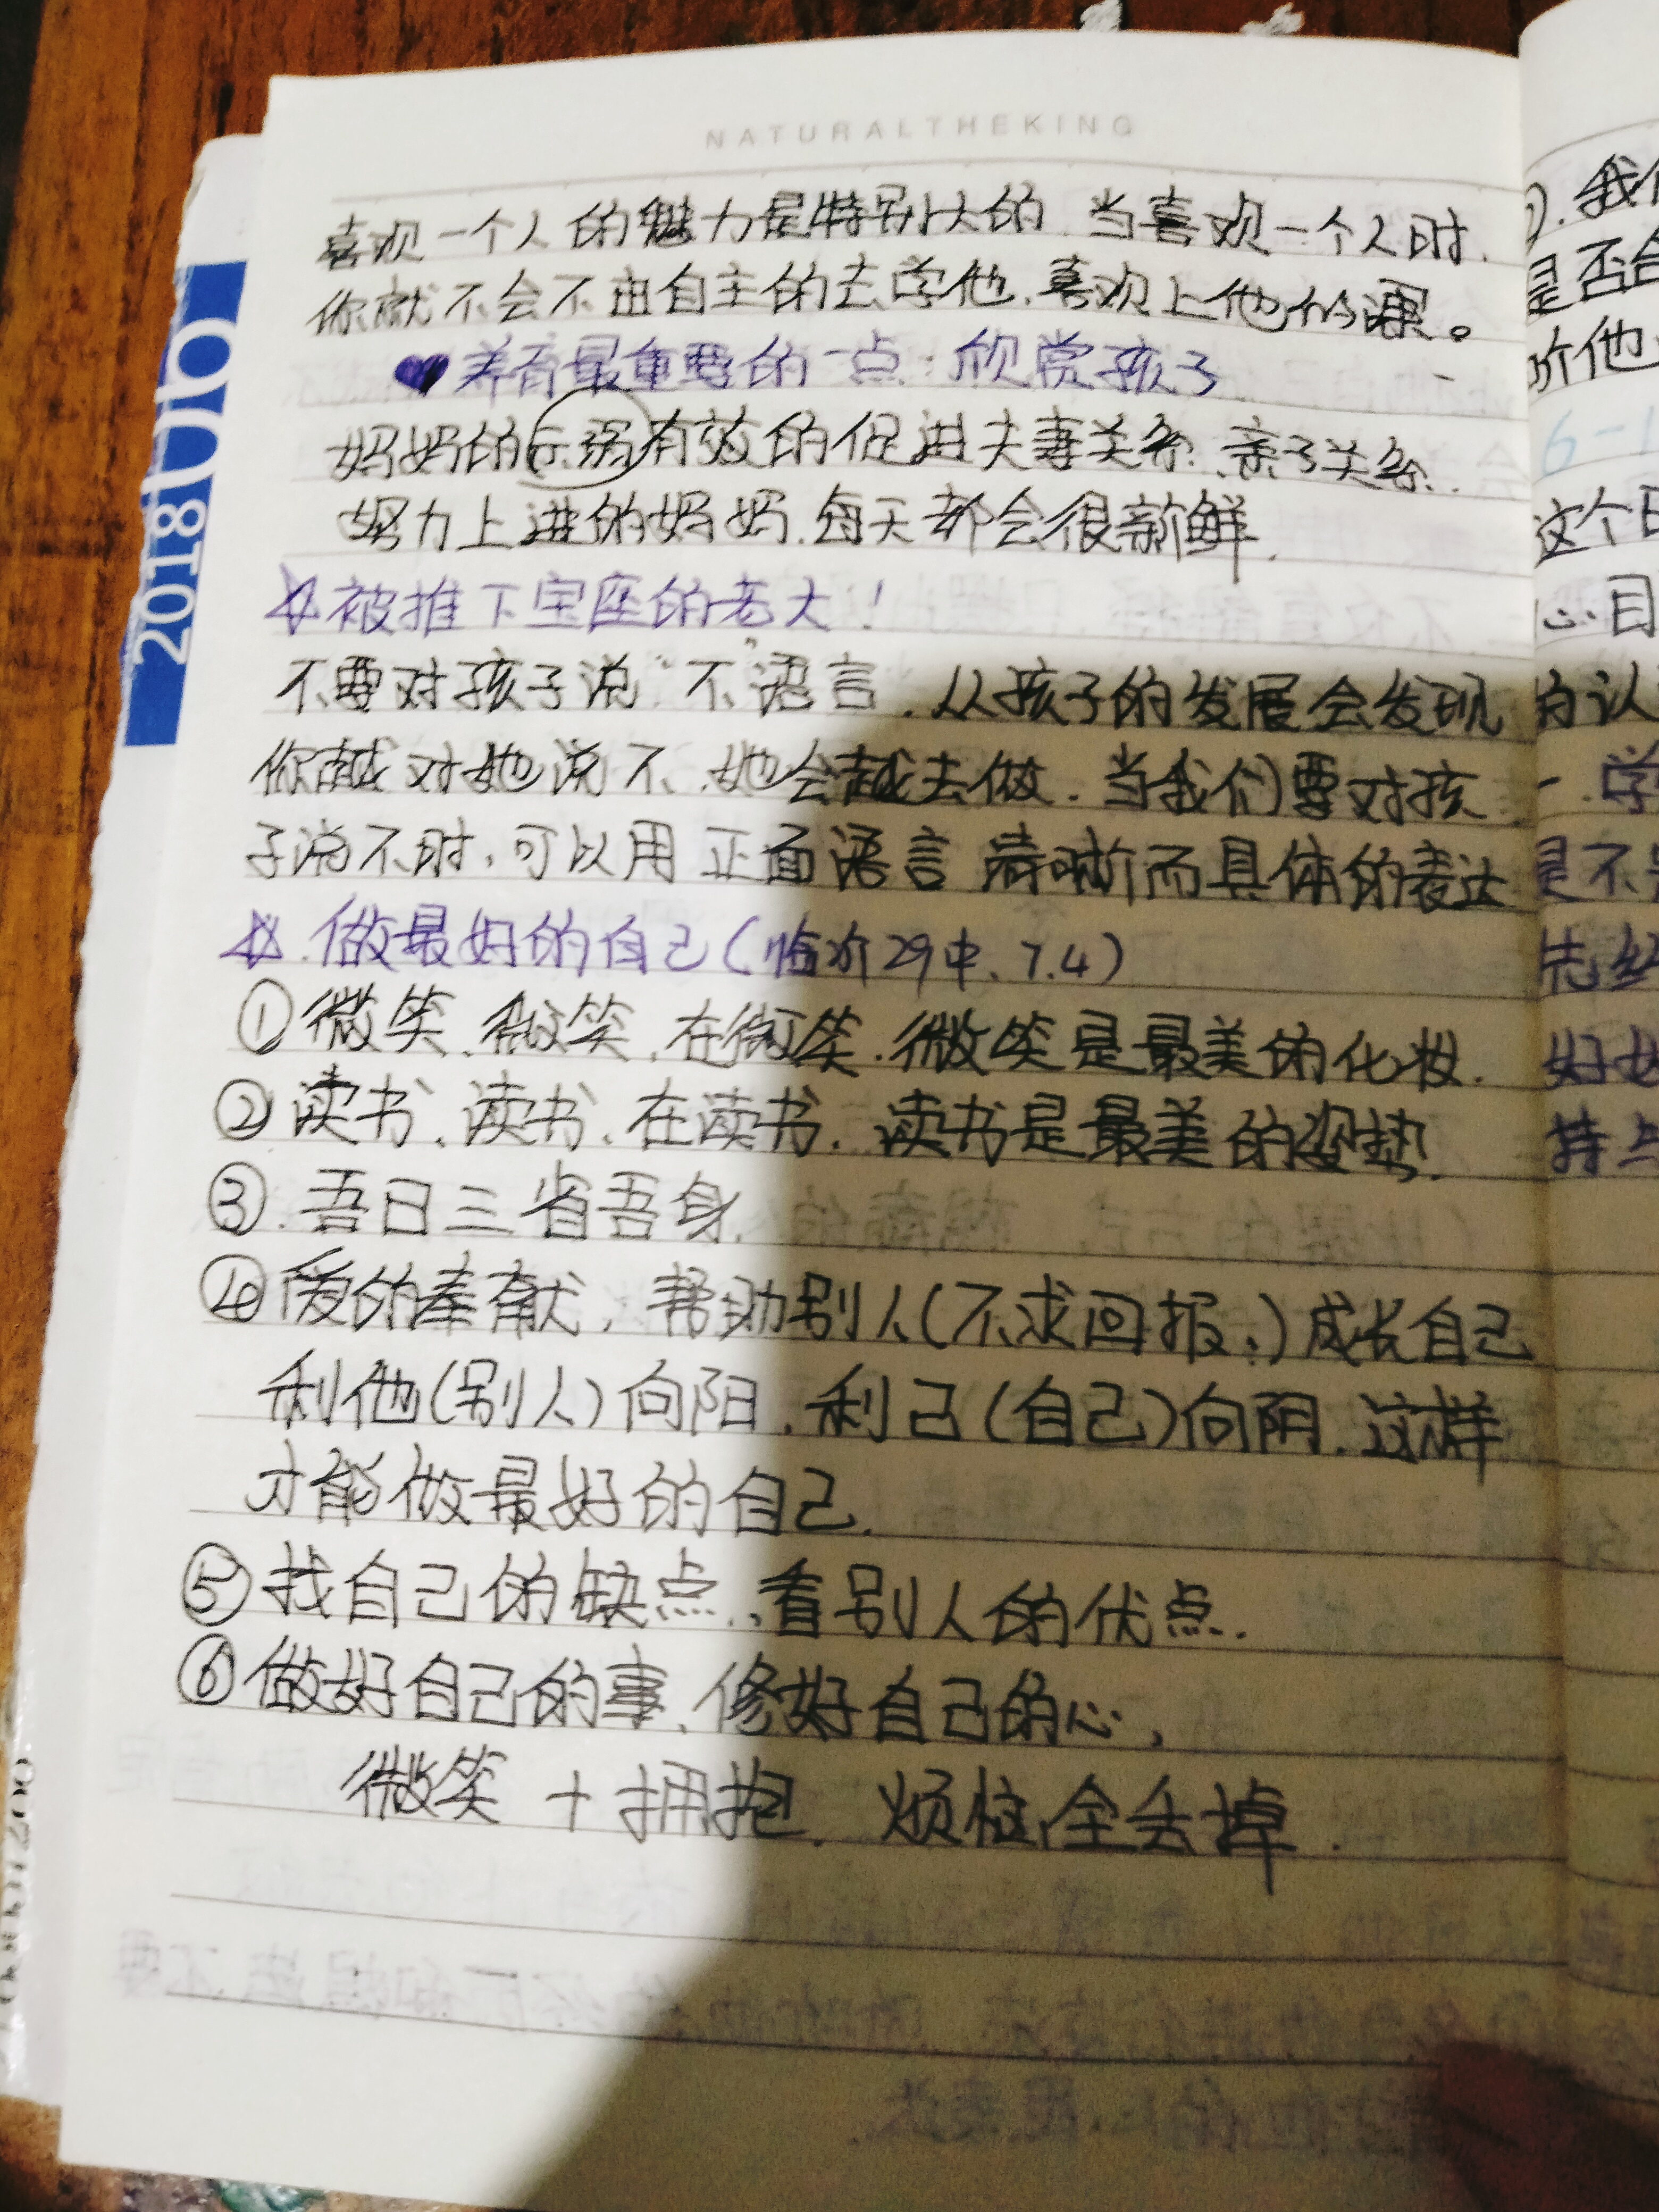 NATURALTHEKING
喜欢一个人的魅力是特别大的.当喜欢一个人时.
你就不会不由自主的去学他.喜欢上他的课。
♥养育最重要的一点:欣赏孩子
妈妈的示弱有效的促进夫妻关系.亲子关系.
努力上进的妈妈.每天都会很新鲜.
☆被推下宝座的老大!
不要对孩子说"不"语言.从孩子的发展会发现
你越对她说不.她会越去做.当我们要对孩
子说不时.可以用正面语言 清晰而具体的表达
☆.做最好的自己(临汾29中.7.4)
①微笑.微笑.在微笑.微笑是最美的化妆.
②读书.读书.在读书.读书是最美的姿势.
③.吾日三省吾身.
④爱的奉献,帮助别人(不求回报.)成长自己
利他(别人)向阳.利己(自己)向阴.这样
才能做最好的自己.
⑤找自己的缺点.看别人的优点.
⑥做好自己的事.修好自己的心,
微笑+拥抱.烦恼全丢掉.
2018
).我
是否合
价他
6-1
这个日
心目
的认
一.学
是不
先
好
持